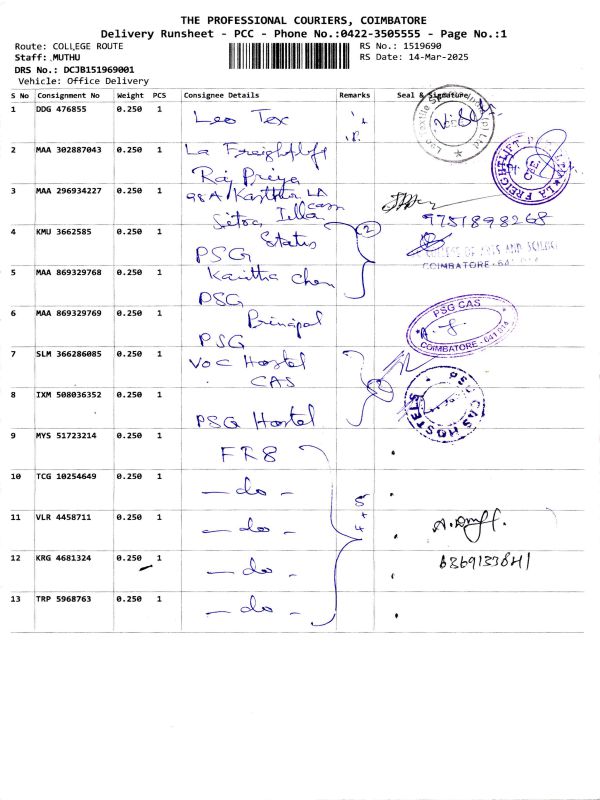 THE PROFESSIONAL COURIERS, COIMBATORE
Delivery Runsheet - PCC - Phone No.:0422-3505555 - Page No.:1
Route: COLLEGE ROUTE
RS No.: 1519690
Staff: MUTHU
RS Date: 14-Mar-2025
DRS No.: DCJB151969001
Vehicle: Office Delivery
S No Consignment No Weight PCS Consignee Details Remarks Seal & Signature
1 DDG 476855 0.250 1 Leo Tex
2 MAA 302887043 0.250 1 La
Raj Priya
LA FREIGHTLIFT
3 MAA 296934227 0.250 1 98A/
9751898268
4 KMU 3662585 0.250 1 Status
PSG
2
OF ARTS AND SCIENCE
COIMBATORE - 641
5 MAA 869329768 0.250 1 Kavitha
PSG
6 MAA 869329769 0.250 1 Principal
PSG
PSG CAS
COIMBATORE - 641 014
7 SLM 366286085 0.250 1 VOC Hostel
CAS
8 IXM 508036352 0.250 1 PSG Hostel
2
PSG CAS HOSTELS
9 MYS 51723214 0.250 1 FR8
10 TCG 10254649 0.250 1 - do -
11 VLR 4458711 0.250 1 - do -
12 KRG 4681324 0.250 1 - do -
6369133841
13 TRP 5968763 0.250 1 - do -